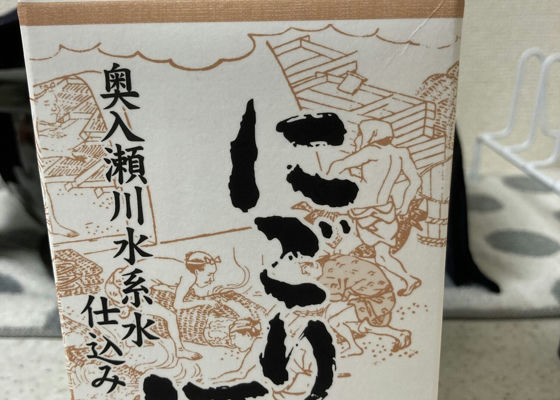 にごり
奥入瀬川水系水
仕込み